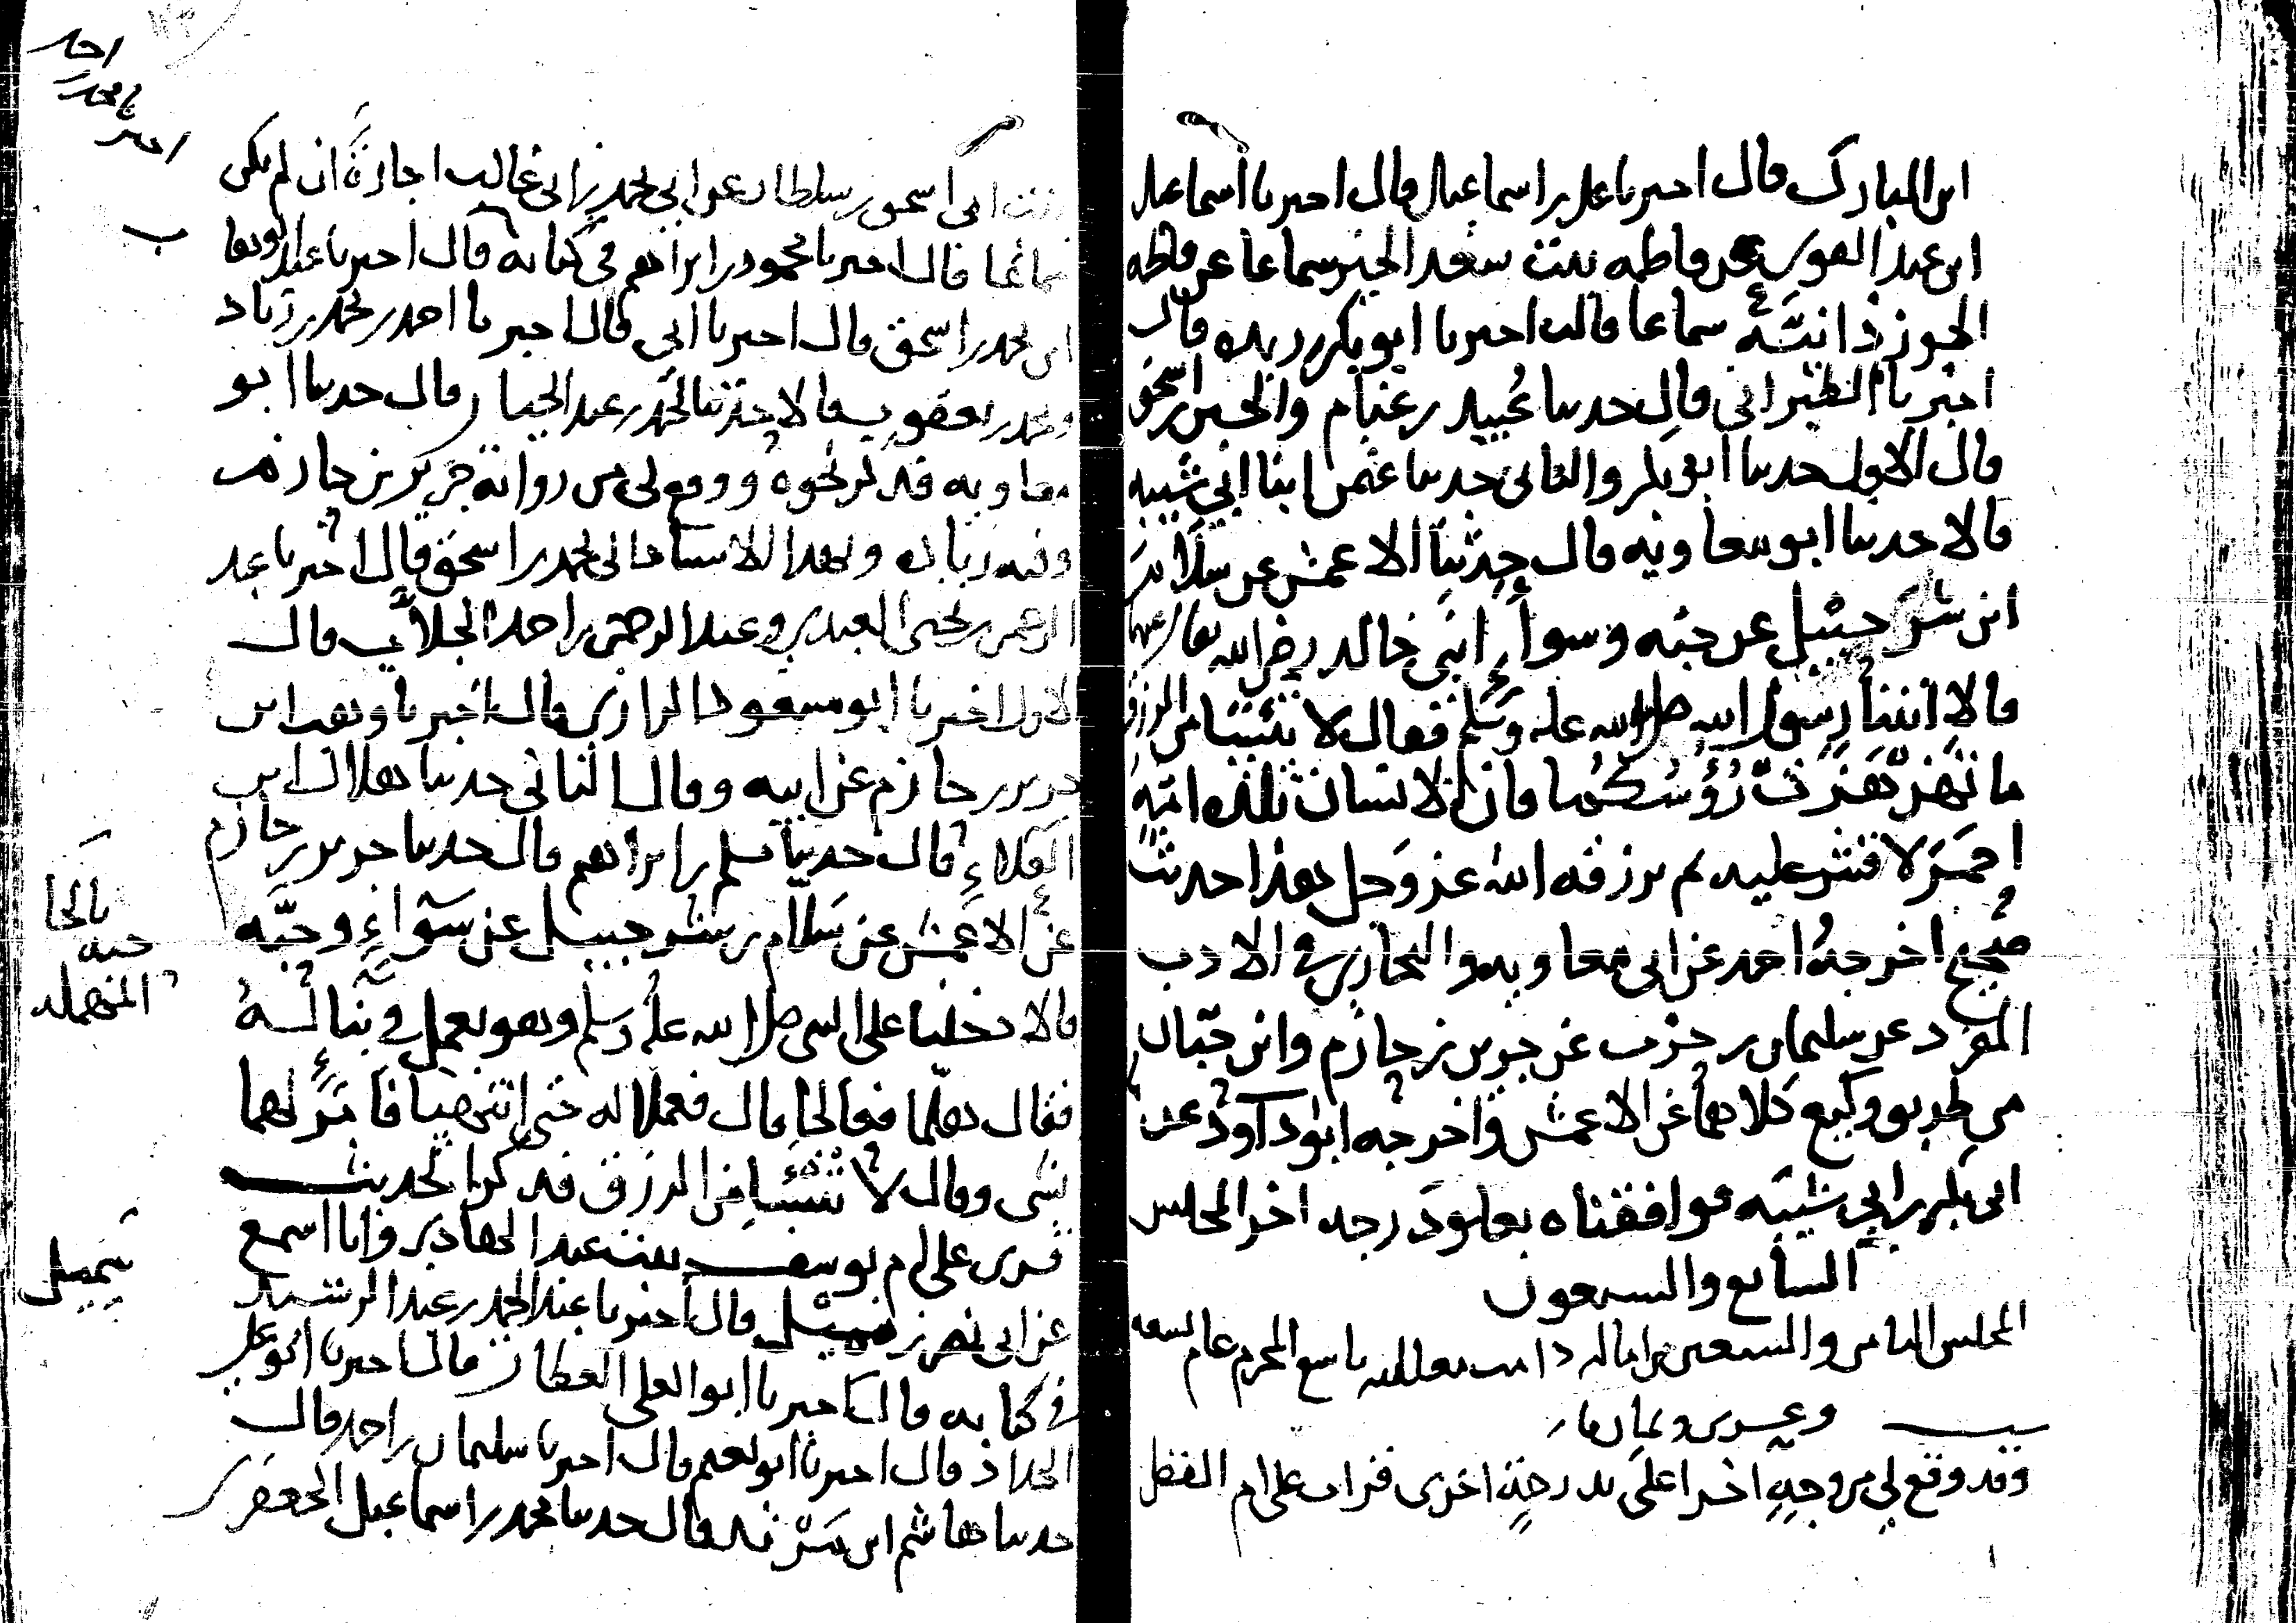 ابن المبارك قال اخبرنا علي بن اسماعيل قال اخبرنا اسماعيل
ابن عبد القوي عن فاطمه بنت سعد الخير سماعا عن فاطمه
الجوزذانيّة سماعا قالت اخبرنا ابو بكر بن ريذه قال
اخبرنا الطبراني قال حدثنا عُبيد بن غنام والحسين بن اسحق
قال الاول حدثنا ابو بكر والثاني حدثنا عثمن ابنا ابي شيبه
قالا حدثنا ابو معاويه قال حدثنا الاعمش عن سلام
ابن شرحبيل عن حبّه وسواء ابني خالد رضي الله تعالى عنهما
قالا اتينا رسول الله صلى الله عليه وسلم فقال لا تيئسا من الرزق
ما تهزهزت رُؤُسُكُما فان الانسان تلده امّه
احمَرَ لا قشر عليه ثم يرزقه الله عز وجل هذا حديث
صحيح اخرجهُ احمد عن ابي معاويه والبخاري في الادب
المفرد عن سليمان بن حرب عن جرير بن حازم وابن حبّان
من طريق وكيع كلاهما عن الاعمش واخرجه ابو داود عن
ابي بكر بن ابي شيبَه فوافقناه بعلو درجه اخر المجلس
السابع والسبعون
المجلس الثامن والسبعين من اماليه دامت معاليه تاسع المحرم عام تسعه
وعشرين وثمان مايه
وقد وقع لي من وجهٍ اخر اعلى بدرجةٍ اخرى قرات على ام الفضل
بنت ابي اسحق بن سلطان عن ابي محمد بن ابي غالب اجازةً ان لم يكن
سماعا قال اخبرنا محمود بن ابراهيم في كتابه قال اخبرنا عبد الوهاب
ابن محمد بن اسحق قال اخبرنا ابي قال اخبرنا احمد بن محمد بن زياد
ومحمد بن يعقوب قالا حدثنا احمد بن عبد الجبار قال حدثنا ابو
معاويه فذكر نحوه ووقع لي من رواية جرير بن حازم
وفيه زياده وبهذا الاسناد الى محمد بن اسحق قال اخبرنا عبد
الرحمن بن يحيى العبدي وعبد الرحمن بن احمد الجلاب قال
الاول اخبرنا ابو مسعود الرازي قال اخبرنا وهب ابن
جرير بن حازم عن ابيه وقال الثاني حدثنا هلال ابن
العلاءِ قال حدثنا مسلم بن ابراهيم قال حدثنا جرير بن حازم
عن الاعمش عن سَلّام بن شرحبيل عن سَوَاءٍ وحبّه
قالا دخلنا على النبي صلى الله عليه وسلم وهو يعمل في بنا لهُ
فقال هلمّا فعالجا قال فعملا له حتى انتهيا فامَرَ لهما
بشي وقال لا تيئسا من الرزق فذكر الحديث
قرئ على ام يوسف بنت عبد الهادي وانا اسمع
عن ابي نصر بن شميل قال اخبرنا عبد الحميد بن عبد الرشيد
في كتابه قال اخبرنا ابو العلى العطار قال اخبرنا ابو علي
الحداد قال اخبرنا ابو نعيم قال اخبرنا سليمان بن احمد قال
حدثنا هاشم ابن مَرْثد قال حدثنا محمد بن اسماعيل الجعفري
بالحا
حبه
المهمله
شميل